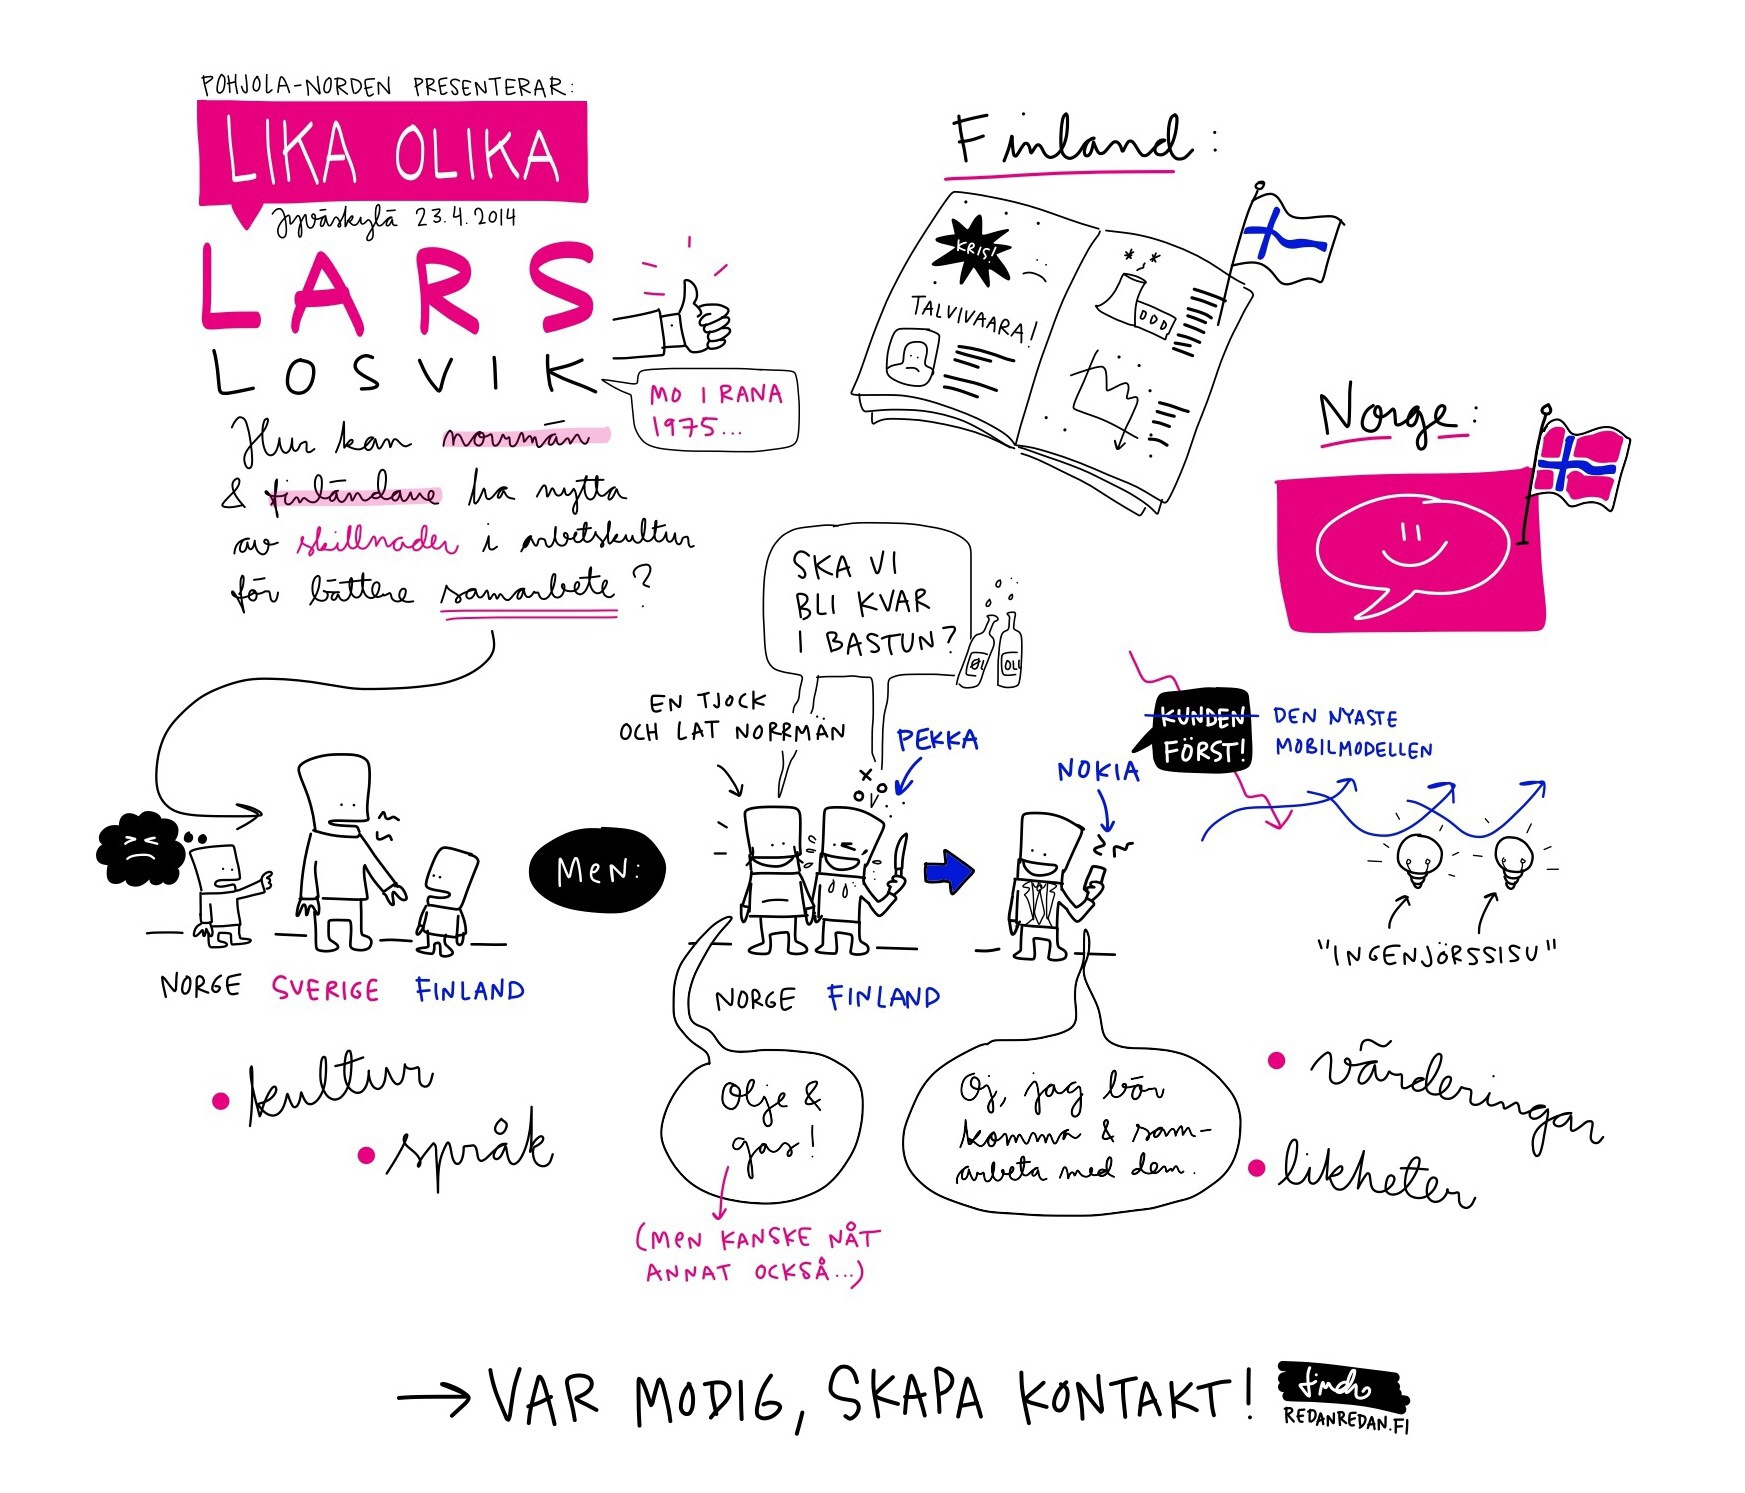 POHJOLA-NORDEN PRESENTERAR:
LIKA OLIKA
Jyväskylä 23.4.2014
LARS
LOSVIK
MO I RANA
1975...
Hur kan norrmän
& finländare ha nytta
av skillnader i arbetskultur
för bättere samarbete?
Finland:
KRIS!
TALVIVAARA!
Norge:
SKA VI
BLI KVAR
I BASTUN?
ØL
OLL
EN TJOCK
OCH LAT NORRMÄN
PEKKA
NOKIA
KUNDEN
FÖRST!
DEN NYASTE
MOBILMODELLEN
"INGENJÖRSSISU"
Men:
NORGE
SVERIGE
FINLAND
NORGE
FINLAND
• kultur
• språk
Olje &
gas!
(MEN KANSKE NÅT
ANNAT OCKSÅ...)
Oj, jag bör
komma & sam-
arbeta med dem.
• värderingar
• likheter
→ VAR MODIG, SKAPA KONTAKT!
REDANREDAN.FI